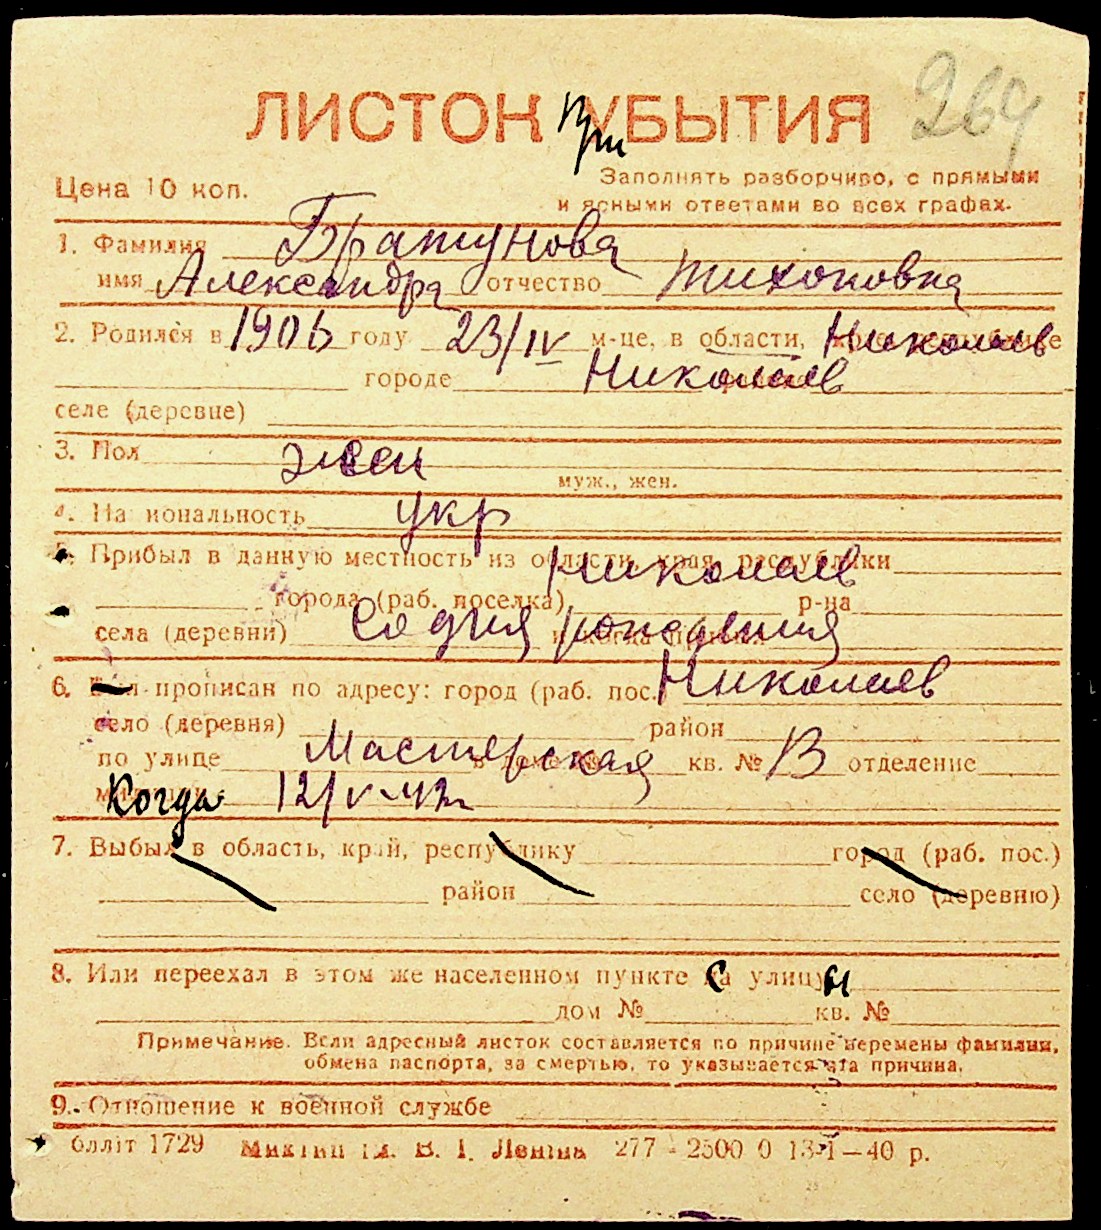 264
ЛИСТОК ПриБЫТИЯ
Цена 10 коп.
Заполнять разборчиво, с прямыми
и ясными ответами во всех графах.
1. Фамилия Братунова
имя Александра отчество Тихоновна
2. Родился в 1906 году 23/IV м-це, в области, Николаев
городе Николаев
селе (деревне)
3. Пол жен
муж., жен.
4. Национальность укр
5. Прибыл в данную местность из области, края, республики Николаев
города (раб. поселка) р-на
села (деревни) Со дня рождения
6. прописан по адресу: город (раб. пос.) Николаев
село (деревня) район
по улице Мастерская кв. № 13 отделение
Когда 12/V-42г
7. Выбыл в область, край, республику город (раб. пос.)
район село (деревню)
8. Или переехал в этом же населенном пункте с улицы
дом № кв. №
Примечание. Если адресный листок составляется по причине перемены фамилии,
обмена паспорта, за смертью, то указывается эта причина.
9. Отношение к военной службе
білліт 1729 Ленина 277 - 2500 0 13-I-40 р.